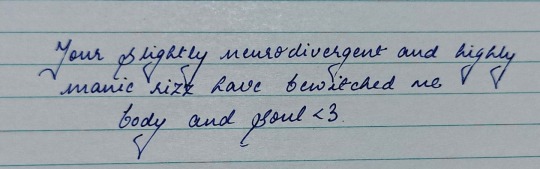 Your slightly neurodivergent and highly
manic rizz have bewitched me
body and soul <3.